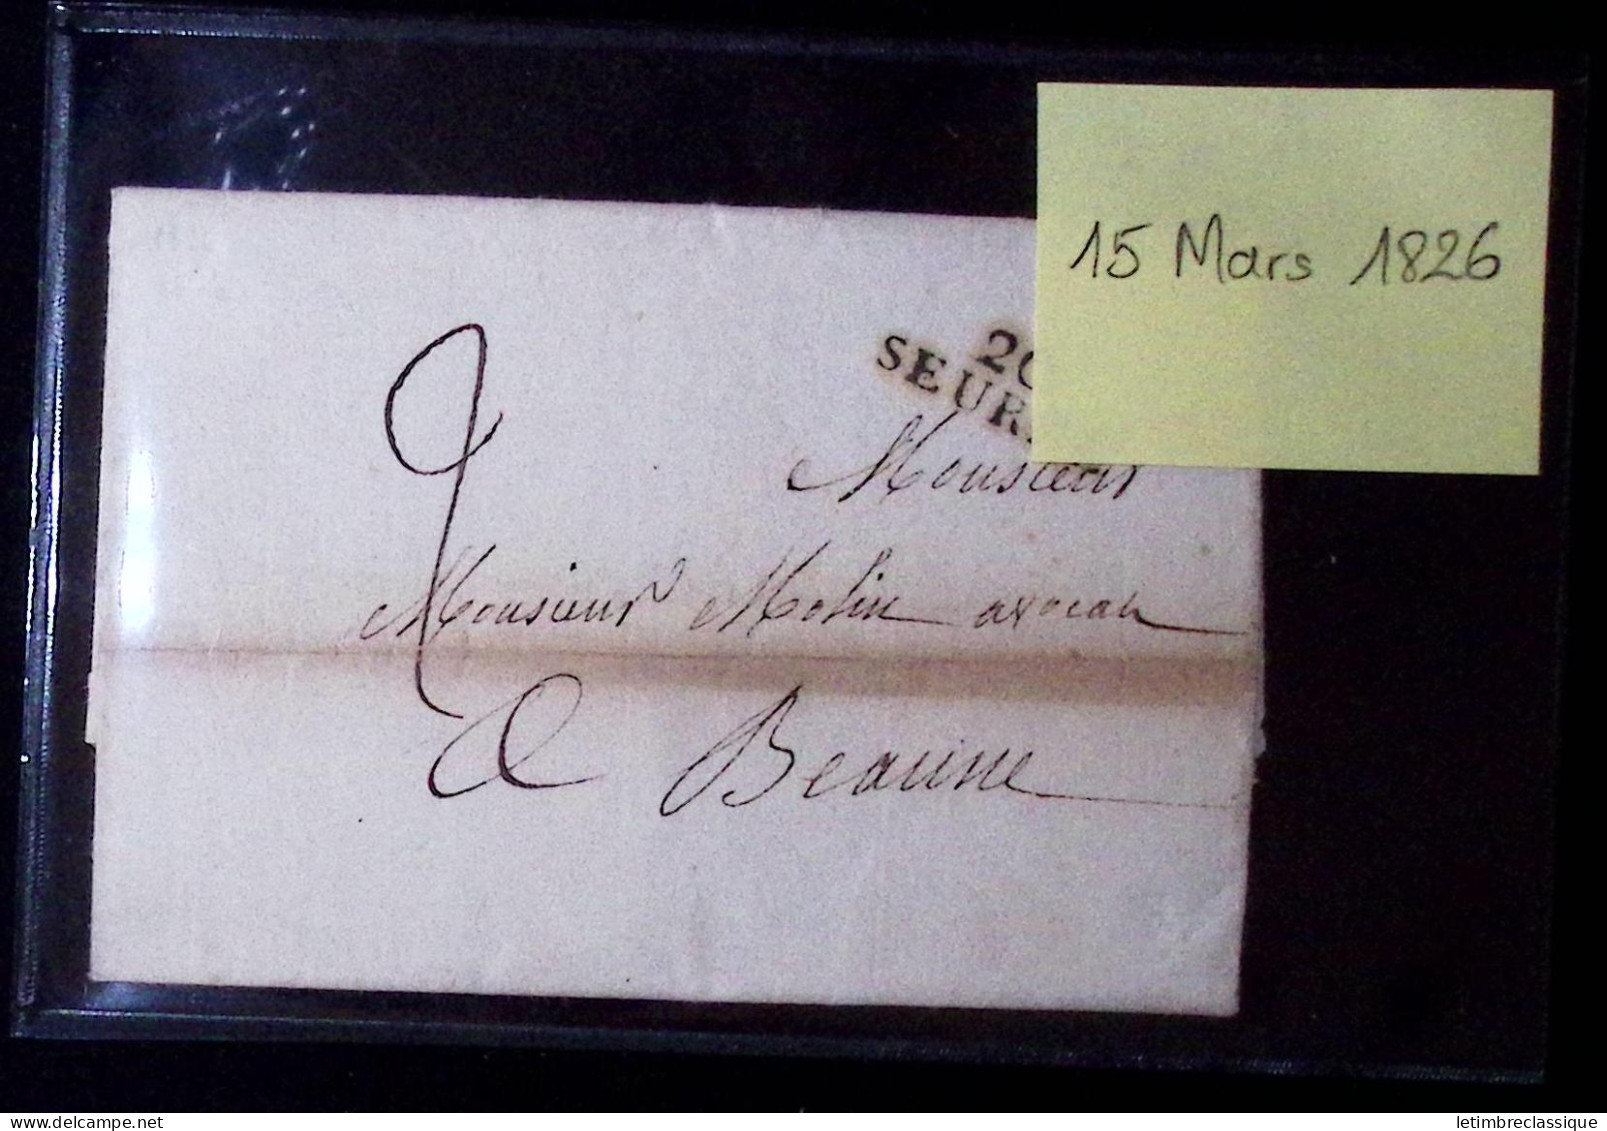 15 Mars 1826
2
SEUR
Monsieur
Monsieur Molin avocat
A Beaune
delcampe.net
letimbreclassique